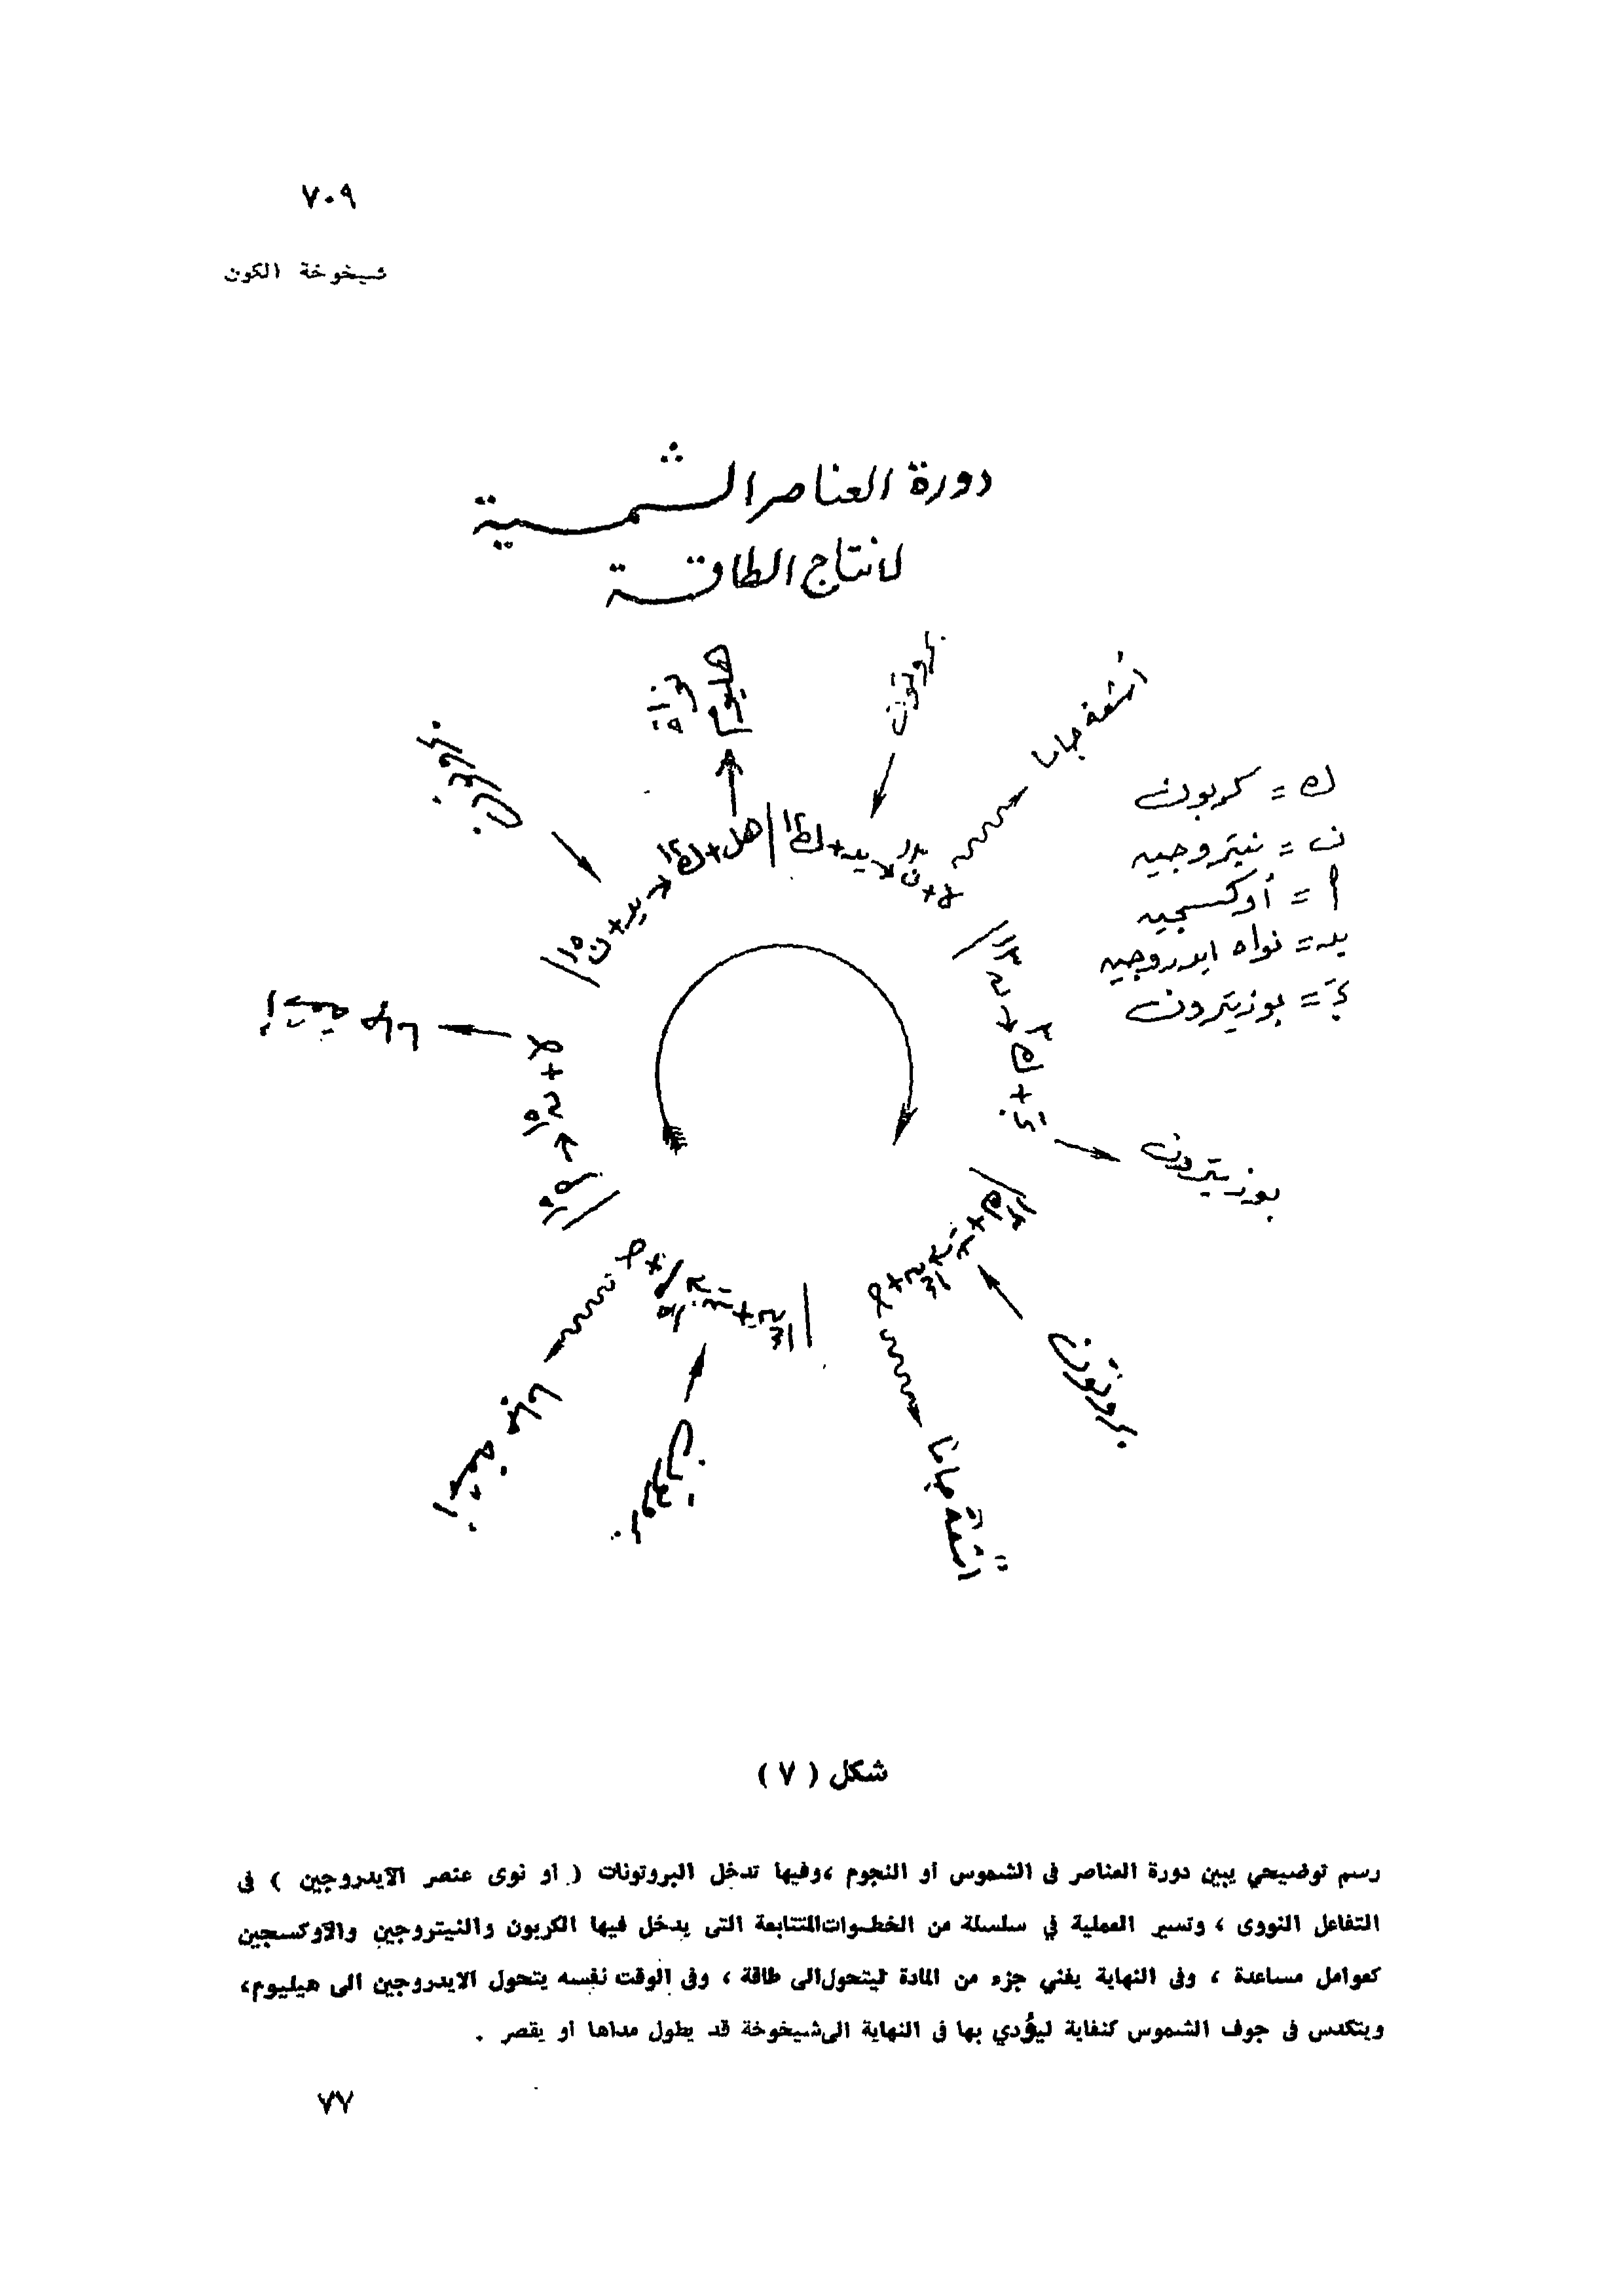 ٧٠٩
شيخوخة الكون
دورة العناصر الشمسية
لانتاج الطاقة
بروتون
نواة
هليوم
بروتون
أشعة جاما
ك = كربون
ن = نيتروجين
أ = أوكسجين
يد = نواه ايدروجين
بوزيترون
بوزيترون
بروتون
اشعة جاما
بروتون
اشعة جاما
شكل ( ٧ )
رسم توضيحي يبين دورة العناصر فى الشموس أو النجوم ، وفيها تدخل البروتونات ( أو نوى عنصر الآيدروجين ) فى
التفاعل النووى ، وتسير العملية في سلسلة من الخطوات المتتابعة التى يدخل فيها الكربون والنيتروجين والأوكسجين
كعوامل مساعدة ، وفى النهاية يفني جزء من المادة ليتحول الى طاقة ، وفى الوقت نفسه يتحول الايدروجين الى هيليوم،
ويتكدس فى جوف الشموس كنفاية ليؤدي بها فى النهاية الى شيخوخة قد يطول مداها أو يقصر .
٧٧